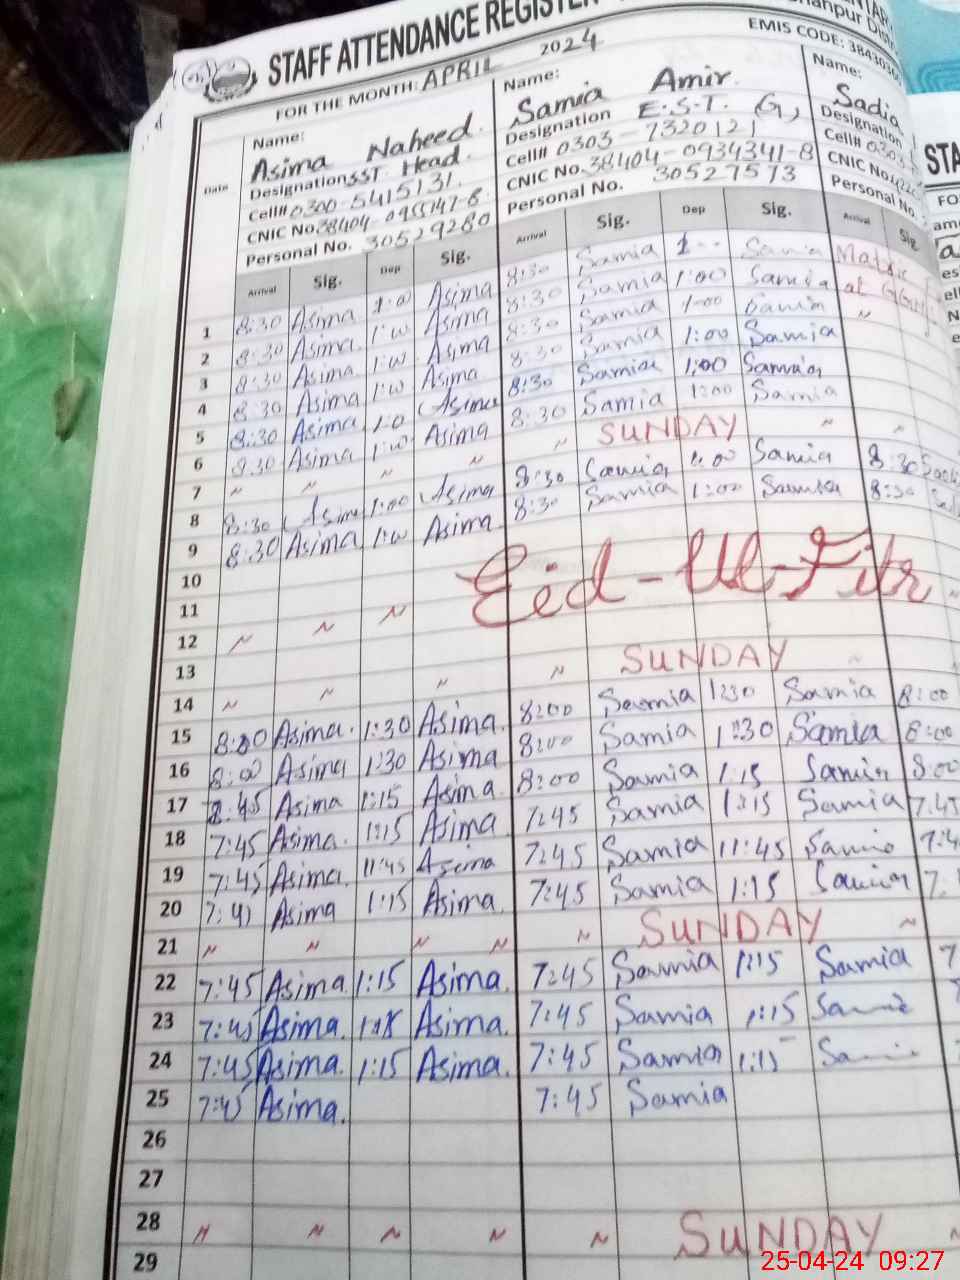 STAFF ATTENDANCE REGISTER
EMIS CODE: 3843036
FOR THE MONTH: APRIL 2024
Date
Name: Asima Naheed.
Designation SST Head.
Cell# 0300-5415131.
Personal No. 30529280
Name: Samia Amir.
Designation E.S.T. (G)
Cell# 0303-7320121
CNIC No. 38404-0934341-8
Personal No. 30527573
Name: Sadia
Designation
Cell# 0303
CNIC No.
Personal No.
STA
FO
Arrival Sig. Dep Sig. Arrival Sig. Dep Sig. Arrival Sig.
1 8:30 Asima 1:00 Asima 8:30 Samia 1 Samia
2 8:30 Asima 1:00 Asima 8:30 Samia 1:00 Samia at
3 8:30 Asima 1:00 Asima 8:30 Samia 1:00 Samia "
4 8:30 Asima 1:00 Asima 8:30 Samia 1:00 Samia
5 8:30 Asima 1:0 Asima 8:30 Samia 1:00 Samia
6 8:30 Asima 1:00 Asima 8:30 Samia 1:00 Samia
7 " " " " " SUNDAY " "
8 8:30 Asima 1:00 Asima 8:30 Samia 1:00 Samia 8:30
9 8:30 Asima 1:00 Asima 8:30 Samia 1:00 Samia 8:30
10
11 Eid-Ul-Fitr
12 " " "
13
14 " " " " SUNDAY "
15 8:00 Asima. 1:30 Asima. 8:00 Samia 1:30 Samia 8:00
16 8:00 Asima 1:30 Asima 8:00 Samia 1:30 Samia 8:00
17 7:45 Asima 1:15 Asima 8:00 Samia 1:15 Samia 8:00
18 7:45 Asima. 1:15 Asima 7:45 Samia 1:15 Samia 7:45
19 7:45 Asima. 11:45 Asima 7:45 Samia 11:45 Samia 7:4
20 7:45 Asima 1:15 Asima. 7:45 Samia 1:15 Samia 7:
21 " " " " " SUNDAY "
22 7:45 Asima. 1:15 Asima. 7:45 Samia 1:15 Samia 7
23 7:45 Asima. 1:15 Asima. 7:45 Samia 1:15 Samia
24 7:45 Asima. 1:15 Asima. 7:45 Samia 1:15 Samia
25 7:45 Asima. 7:45 Samia
26
27
28 " " " " " SUNDAY "
29
25-04-24 09:27